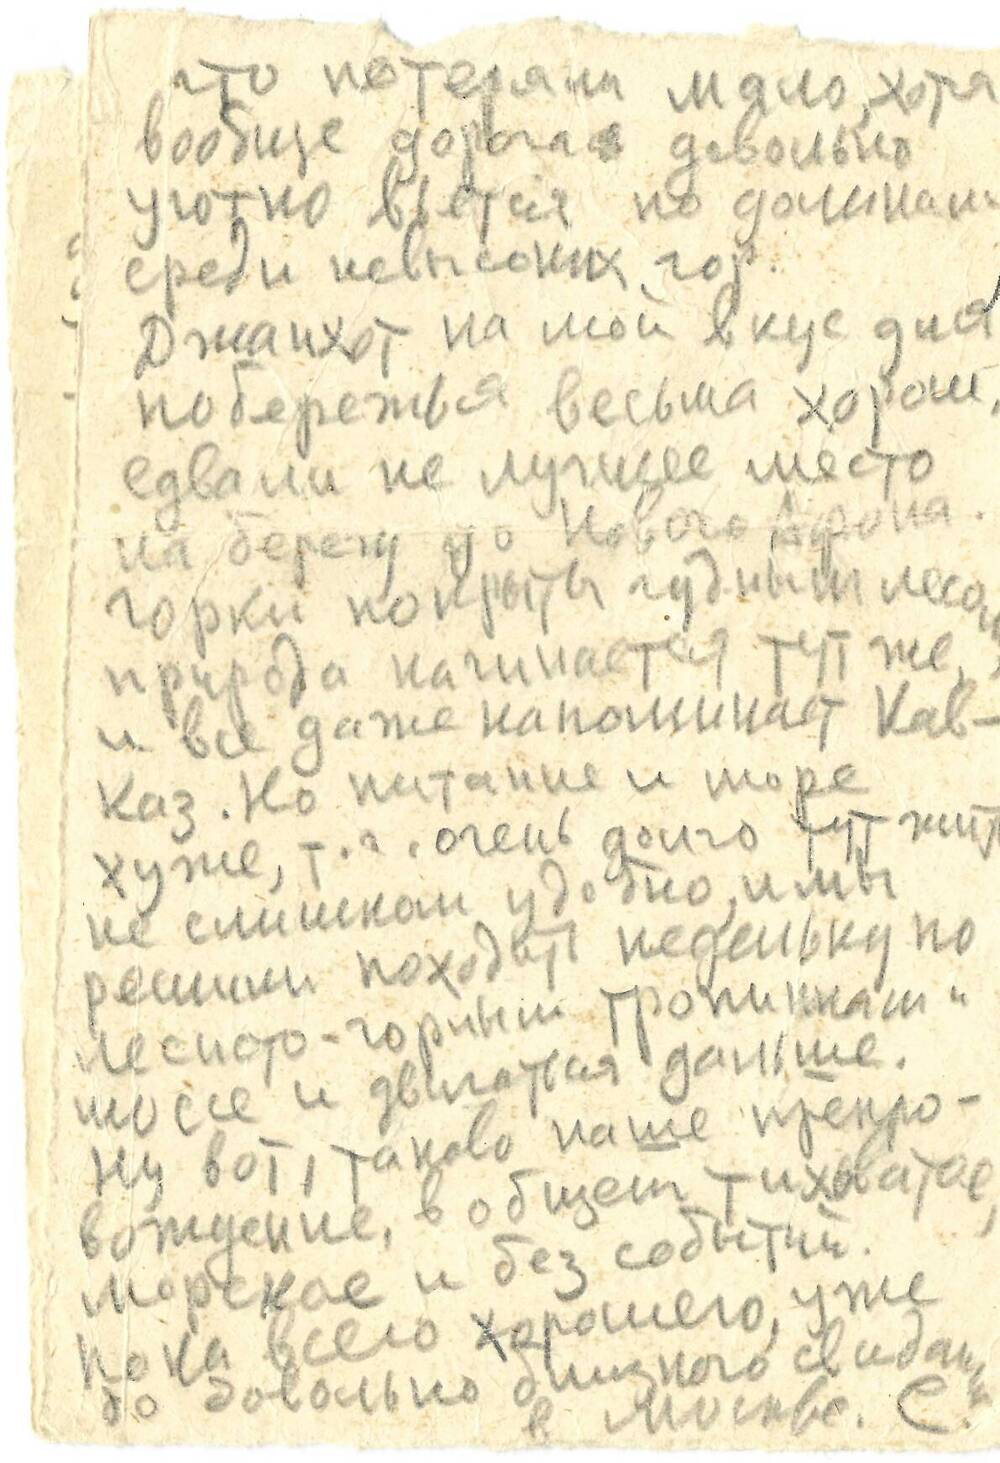 что потеряли мало, хотя
вообще дорога довольно
уютно вьется по долинам
среди невысоких гор.
Джанхот на мой вкус для
побережья весьма хорош,
едвали не лучшее место
на берегу до Нового Афона.
Горки покрыты чудным лесом,
природа начинается тут же,
и все даже напоминает Кав-
каз. Но питание и море
хуже, т.ч. очень долго тут жить
не слишком удобно, и мы
решили походить недельку по
лесисто-горным тропинкам и
шоссе и двигаться дальше.
Ну вот, таково наше препро-
вождение, в общем тиховатое,
морское и без событий.
Пока всего хорошего, уже
до довольно близкого свидания
в Москве. С.